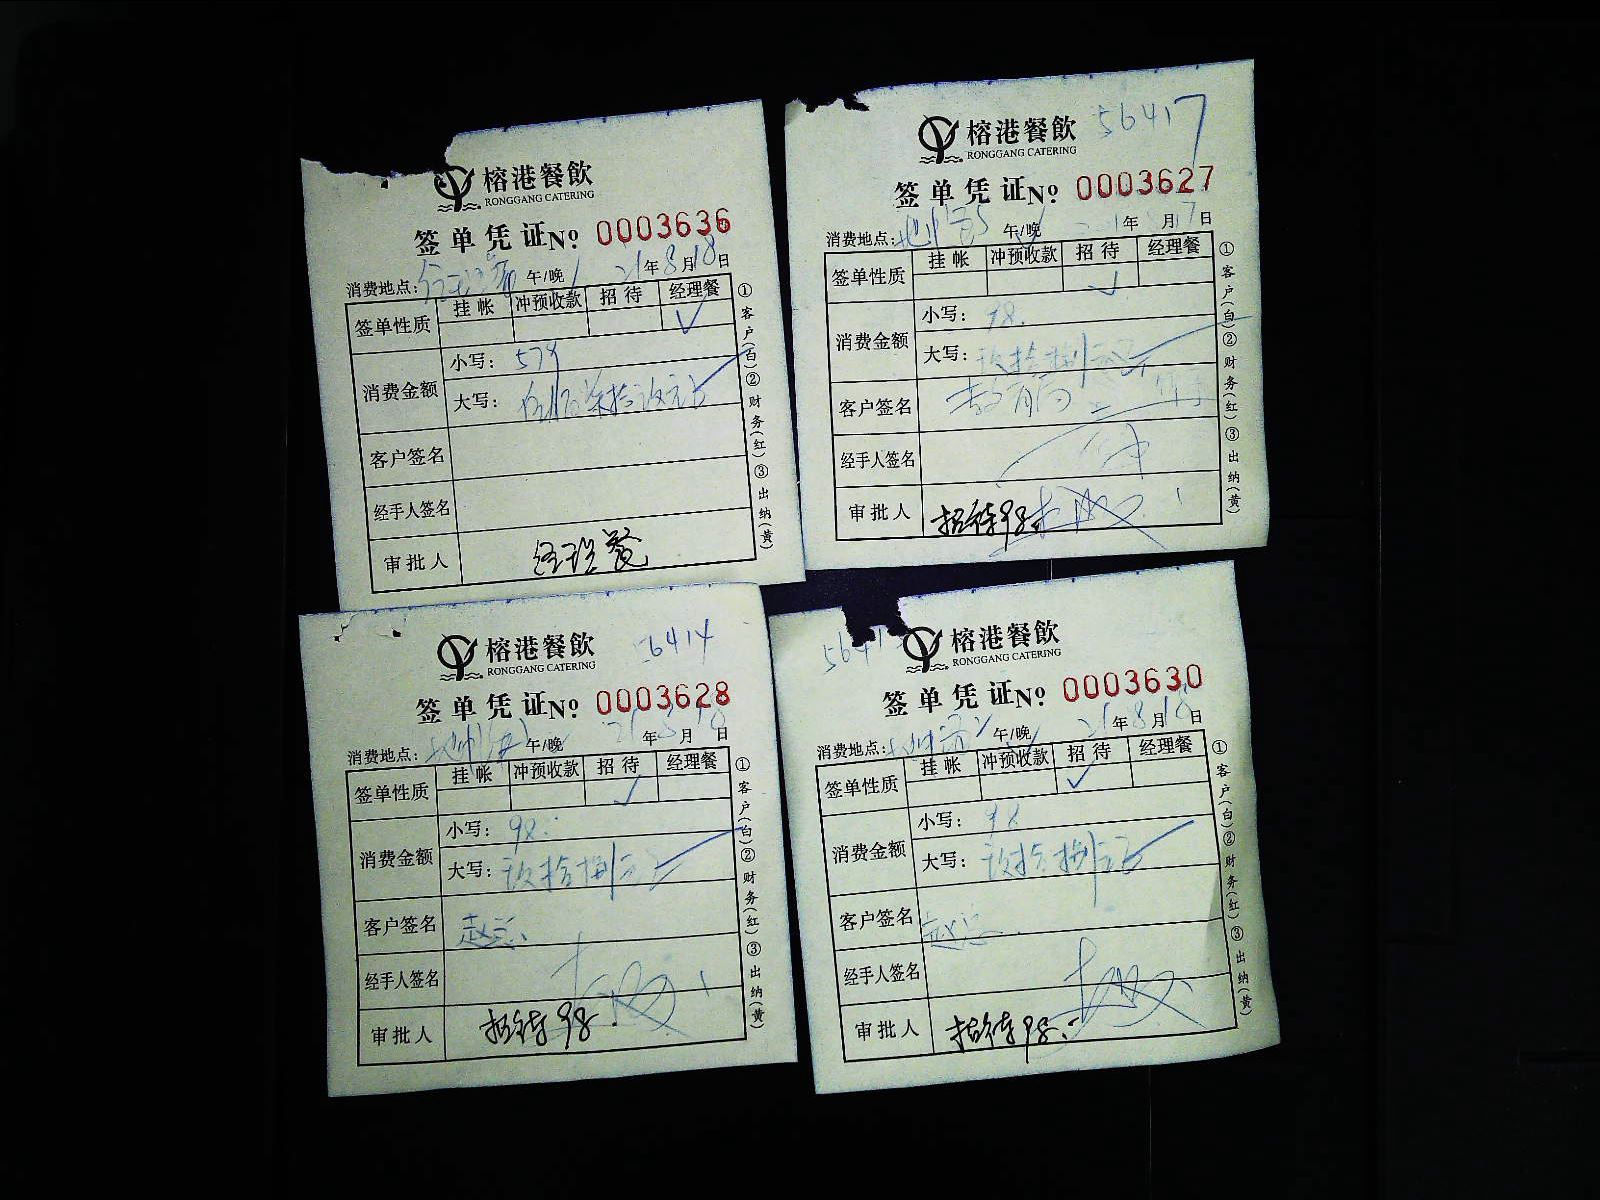 榕港餐飲
RONGGANG CATERING
签单凭证 No. 0003636
消费地点: 午/晚 21年8月18日
签单性质 挂帐 冲预收款 招待 经理餐
✓
消费金额
小写: 579
大写: 伍佰柒拾玖元
客户签名
经手人签名
审批人 经理餐
①客户(白)②财务(红)③出纳(黄)
56417
榕港餐飲
RONGGANG CATERING
签单凭证 No. 0003627
消费地点: 午/晚 年 月17日
签单性质 挂帐 冲预收款 招待 经理餐
✓
消费金额
小写: 98.
大写: 玖拾捌元
客户签名 教育局
经手人签名
审批人 招待98.
①客户(白)②财务(红)③出纳(黄)
56414
榕港餐飲
RONGGANG CATERING
签单凭证 No. 0003628
消费地点: 午/晚 21年8月18日
签单性质 挂帐 冲预收款 招待 经理餐
✓
消费金额
小写: 98.
大写: 玖拾捌元
客户签名 赵总
经手人签名
审批人 招待98.
①客户(白)②财务(红)③出纳(黄)
榕港餐飲
RONGGANG CATERING
签单凭证 No. 0003630
消费地点: 午/晚 21年8月18日
签单性质 挂帐 冲预收款 招待 经理餐
✓
消费金额
小写: 98
大写: 玖拾捌元
客户签名 赵总
经手人签名
审批人 招待98.
①客户(白)②财务(红)③出纳(黄)